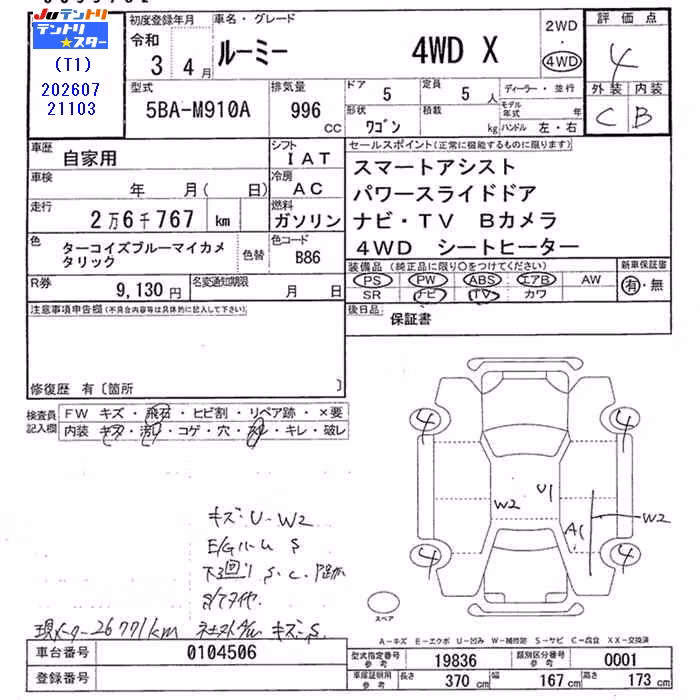 Juテントリ
テントリ
★スター
(T1)
202607
21103
初度登録年月
令和
3 4月
車名・グレード
ルーミー 4WD X
2WD
・
4WD
評価点
4
外装 内装
C B
型式
5BA-M910A
排気量
996 cc
ドア
5
定員
5人
形状
ワゴン
積載
kg
ディーラー・並行
モデル年式 年
ハンドル 左・右
車歴 自家用
シフト IAT
車検 年 月( 日)
冷房 AC
走行 2万6千767 km
燃料 ガソリン
色 ターコイズブルーマイカメタリック
色替
色コード B86
R券 9,130円
名変通知期限 月 日
セールスポイント(正常に機能するものに限ります)
スマートアシスト
パワースライドドア
ナビ・TV Bカメラ
4WD シートヒーター
装備品(純正品に限り○をつけてください)
PS PW ABS エアB AW
SR ナビ TV カワ
新車保証書
有・無
後日品
保証書
注意事項申告欄(不具合内容等は具体的に記入して下さい)
修復歴 有〔箇所 〕
検査員記入欄
FW キズ・飛石・ヒビ割・リペア跡・×要
内装 キズ・汚れ・コゲ・穴・ヌレ・キレ・破レ
キズ・U-W2
E/Gルーム S
下回り S.C.
現メーター26771km
キズ・S
4 4
U1
W2
A1
W2
4 4
スペア
A-キズ E-エクボ U-凹み W-補修跡 S-サビ C-腐食 XX-交換済
車台番号 0104506
登録番号
型式指定番号 参考 19836
類別区分番号 参考 0001
車庫証明用 参考 長さ 370 cm 幅 167 cm 高さ 173 cm